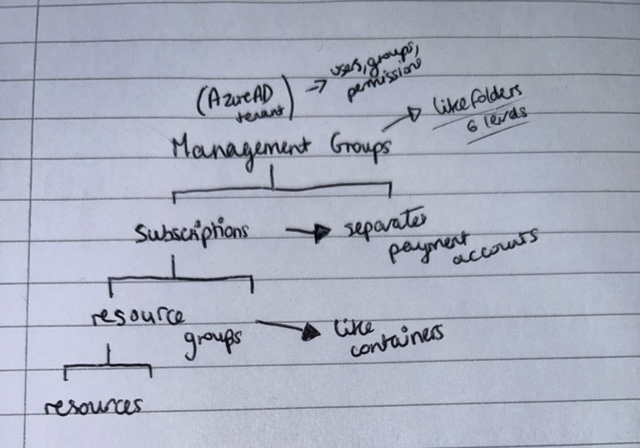 (AzureAD tenant) → users, groups, permissions
Management Groups → like folders
6 levels
Subscriptions → separate
payment accounts
resource groups → like containers
resources